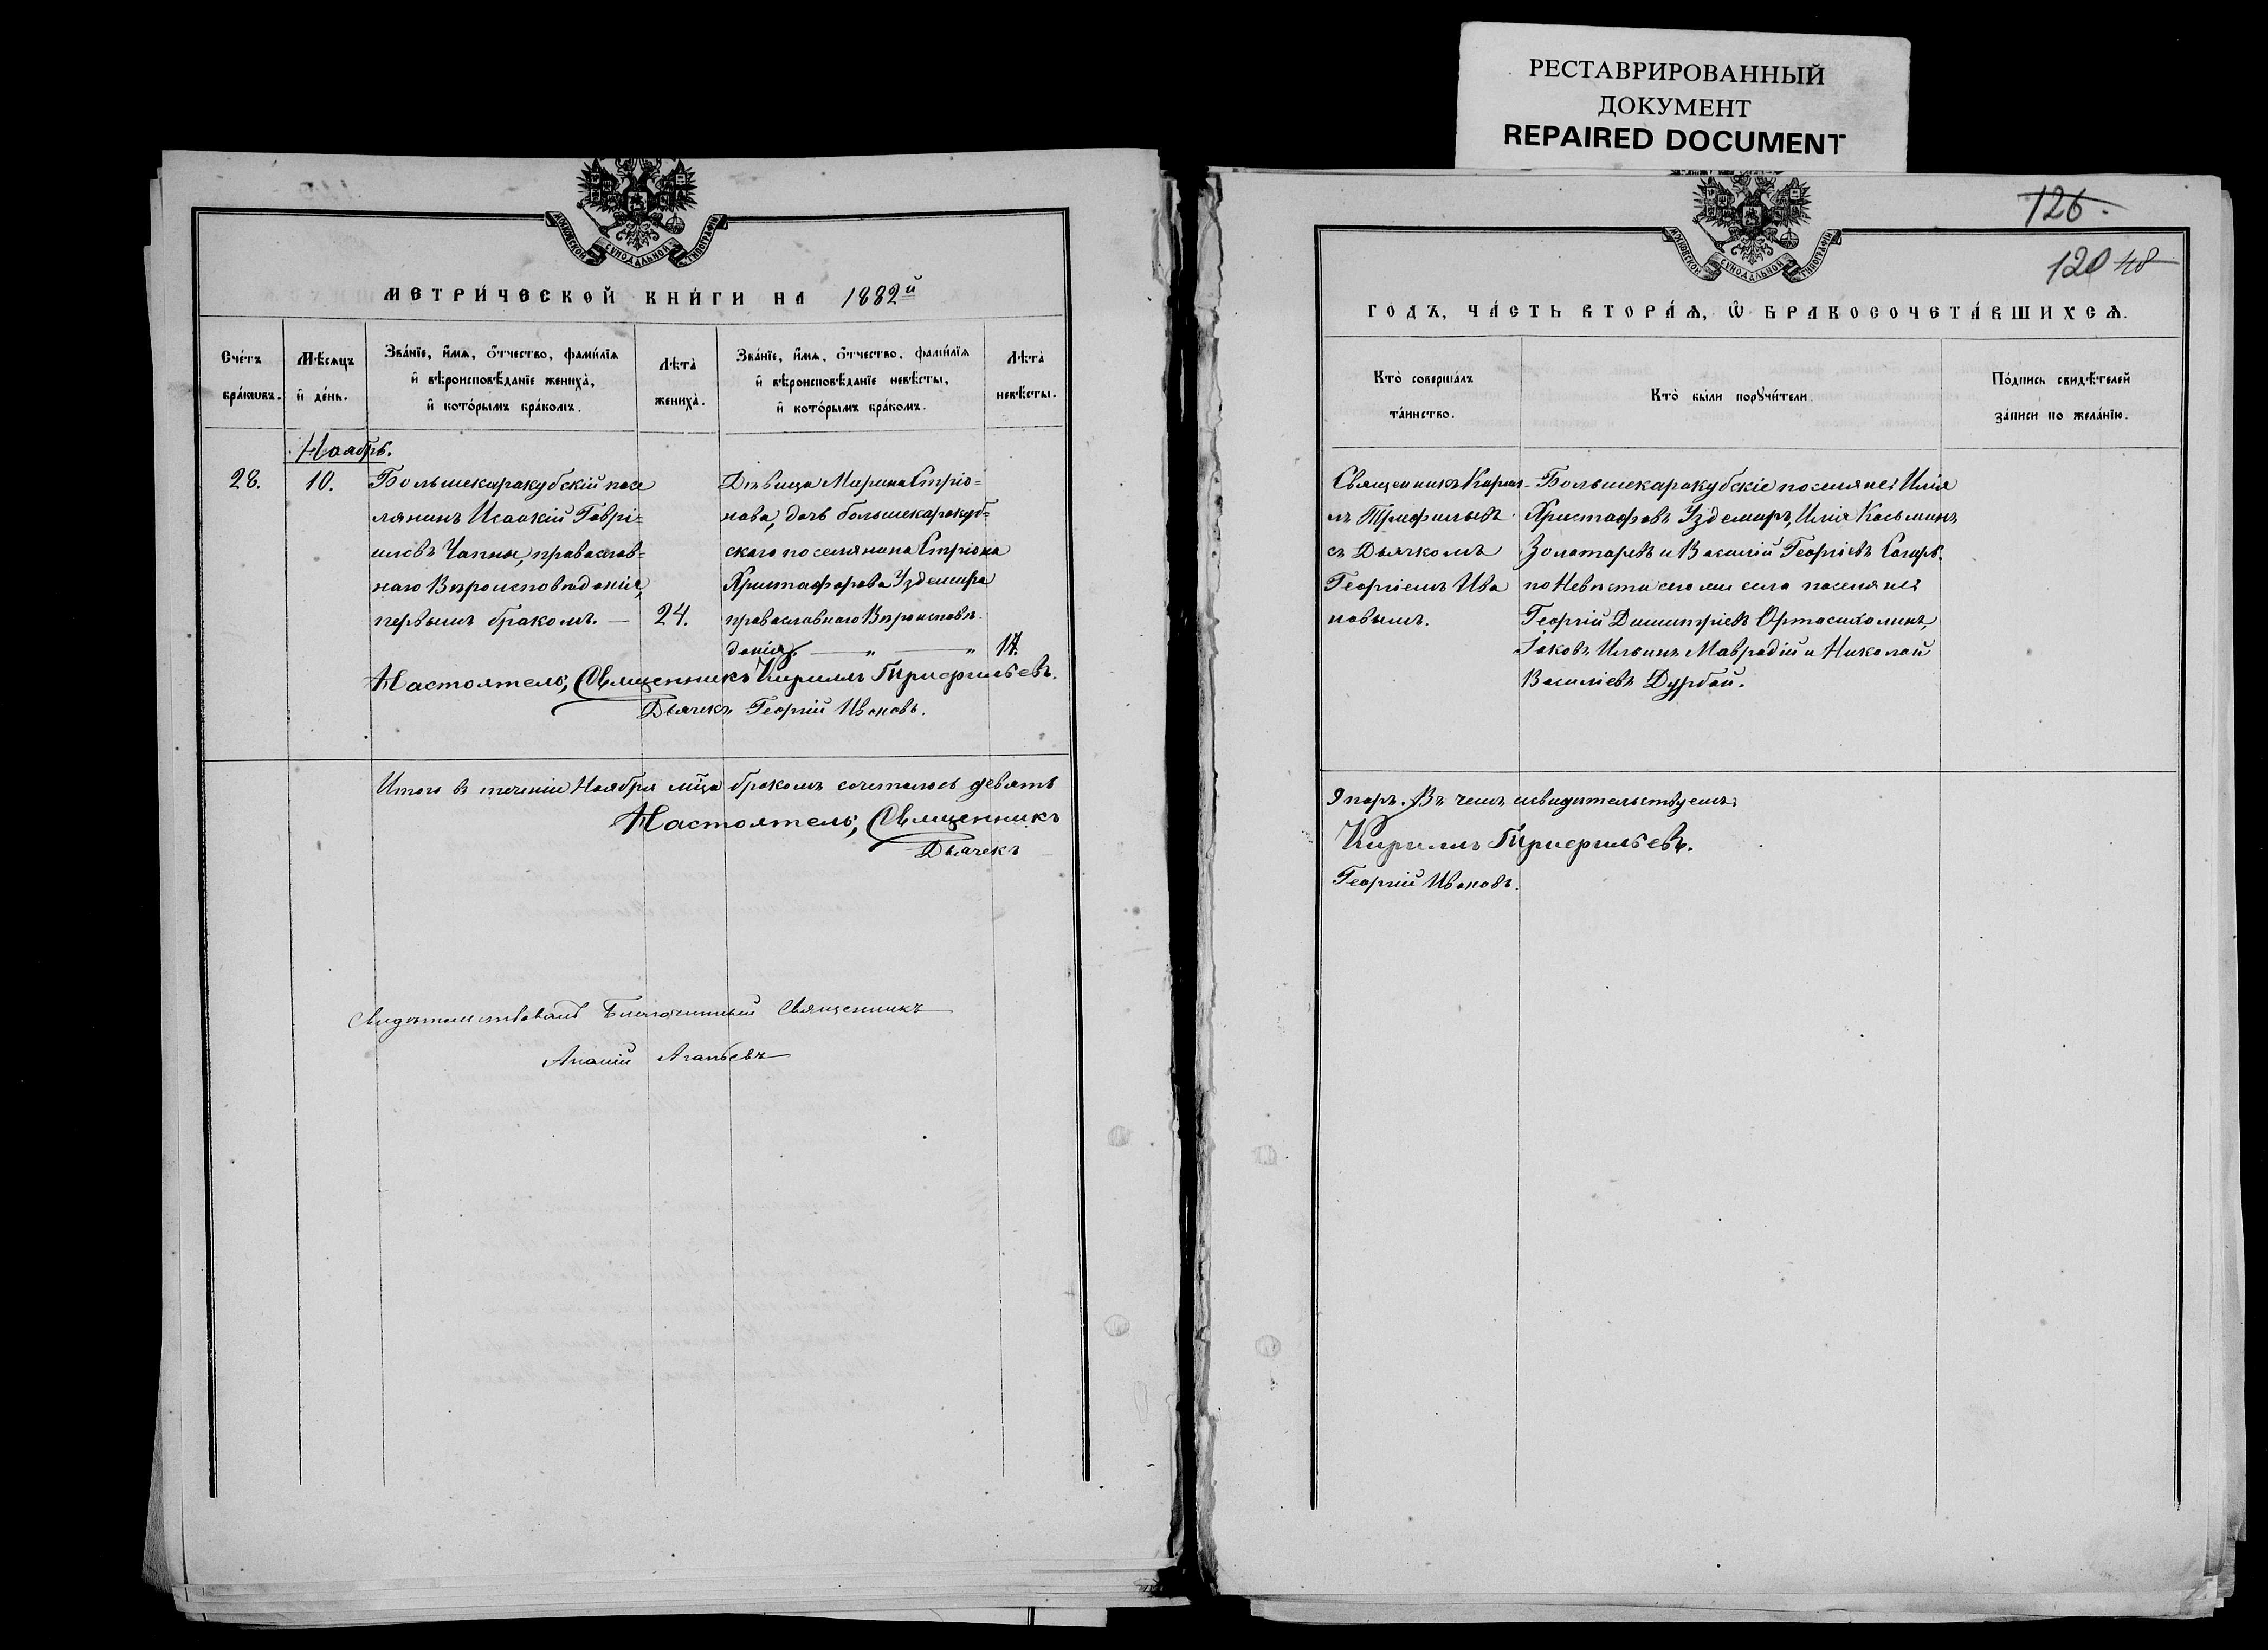 РЕСТАВРИРОВАННЫЙ
ДОКУМЕНТ
REPAIRED DOCUMENT
МОСКОВСКОЙ СѴНОДАЛЬНОЙ ТИПОГРАФІИ
МЕТРИ́ЧЕСКОЙ КНИ́ГИ НА 1882й
Сче́тъ бра́кѡвъ.
Мѣ́сяцъ и҆ де́нь.
Зва́нїе, и҆́мѧ, ѻ҆́тчество, фами́лїѧ
и҆ вѣроисповѣ́данїе жениха̀,
и҆ кото́рымъ бра́комъ.
Лѣта̀
жениха̀.
Зва́нїе, и҆́мѧ, ѻ҆́тчество, фами́лїѧ
и҆ вѣроисповѣ́данїе невѣ́сты,
и҆ кото́рымъ бра́комъ.
Лѣта̀
невѣ́сты.
Ноябрь.
28.
10.
Большекаракубскій посе
лянинъ Исаакій Гаврі=
иловъ Чапни, православ=
наго Вѣроисповѣданія,
первымъ бракомъ. —
24.
Дѣвица Марина Спиріо=
нова, дочь большекаракуб=
скаго поселянина Спиріона
Христофорова Уздемира
православнаго Вѣроисповѣ
данія. — „ — „
17.
Настоятель, Священникъ Кириллъ Трифильевъ.
Дьячекъ Георгій Ивановъ.
Итого въ теченіи Ноября мца бракомъ сочеталось девять
Настоятель, Священникъ
Дьячекъ
Свидѣтельствовалъ Благочинный Священникъ
Ананій Агапьевъ
МОСКОВСКОЙ СѴНОДАЛЬНОЙ ТИПОГРАФІИ
126.
120 48
ГОДЪ, ЧА́СТЬ ВТОРА́Ѧ, Ѽ БРАКОСОЧЕТА́ВШИХСѦ.
Кто̀ соверша́лъ
та́инство.
Кто̀ бы́ли порꙋчи́тели.
По́дпись свидѣ́телей
за́писи по жела́нїю.
Священникъ Кирил
лъ Трифильевъ
съ Дьячкомъ
Георгіемъ Ива
новымъ.
Большекаракубскіе поселяне: Илія
Христофовъ Уздемиръ, Илія Касьминъ
Золотаревъ и Василій Георгіевъ
по Невѣсти сего же села поселяне:
Георгій Димитріевъ
Іаковъ Ильинъ Мавродій и Николай
Василіевъ Дурбай.
9 паръ. Въ чемъ и свидѣтельствуемъ:
Кириллъ Трифильевъ.
Георгій Ивановъ.